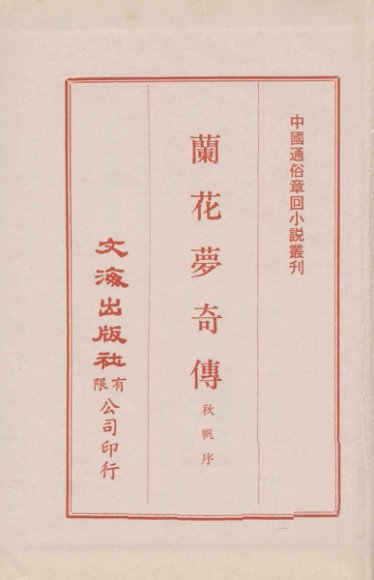 中國通俗章回小説叢刊
蘭花夢奇傳
秋帆序
文海出版社
有限
公司印行